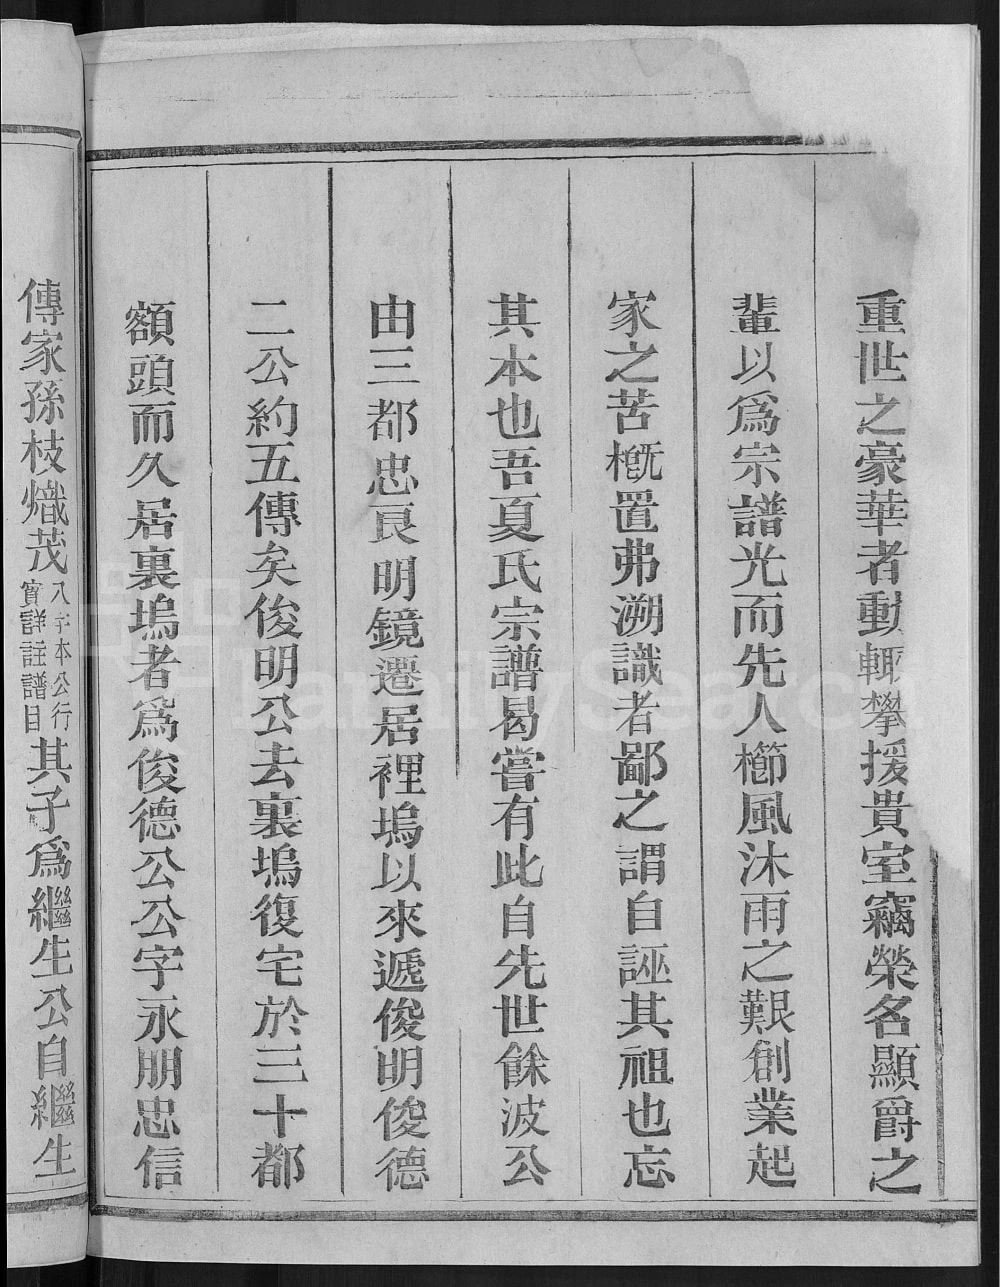 重世之豪華者動輒攀援貴室竊榮名顯爵之
輩以爲宗譜光而先人櫛風沐雨之艱創業起
家之苦概置弗溯識者鄙之謂自誣其祖也忘
其本也吾夏氏宗譜曷嘗有此自先世餘波公
由三都忠良明鏡遷居裡塢以來遞俊明俊德
二公約五傳矣俊明公去裏塢復宅於三十都
額頭而久居裏塢者爲俊德公公字永朋忠信
傳家孫枝熾茂八字本公行實詳註譜目其子爲繼生公自繼生
FamilySearch